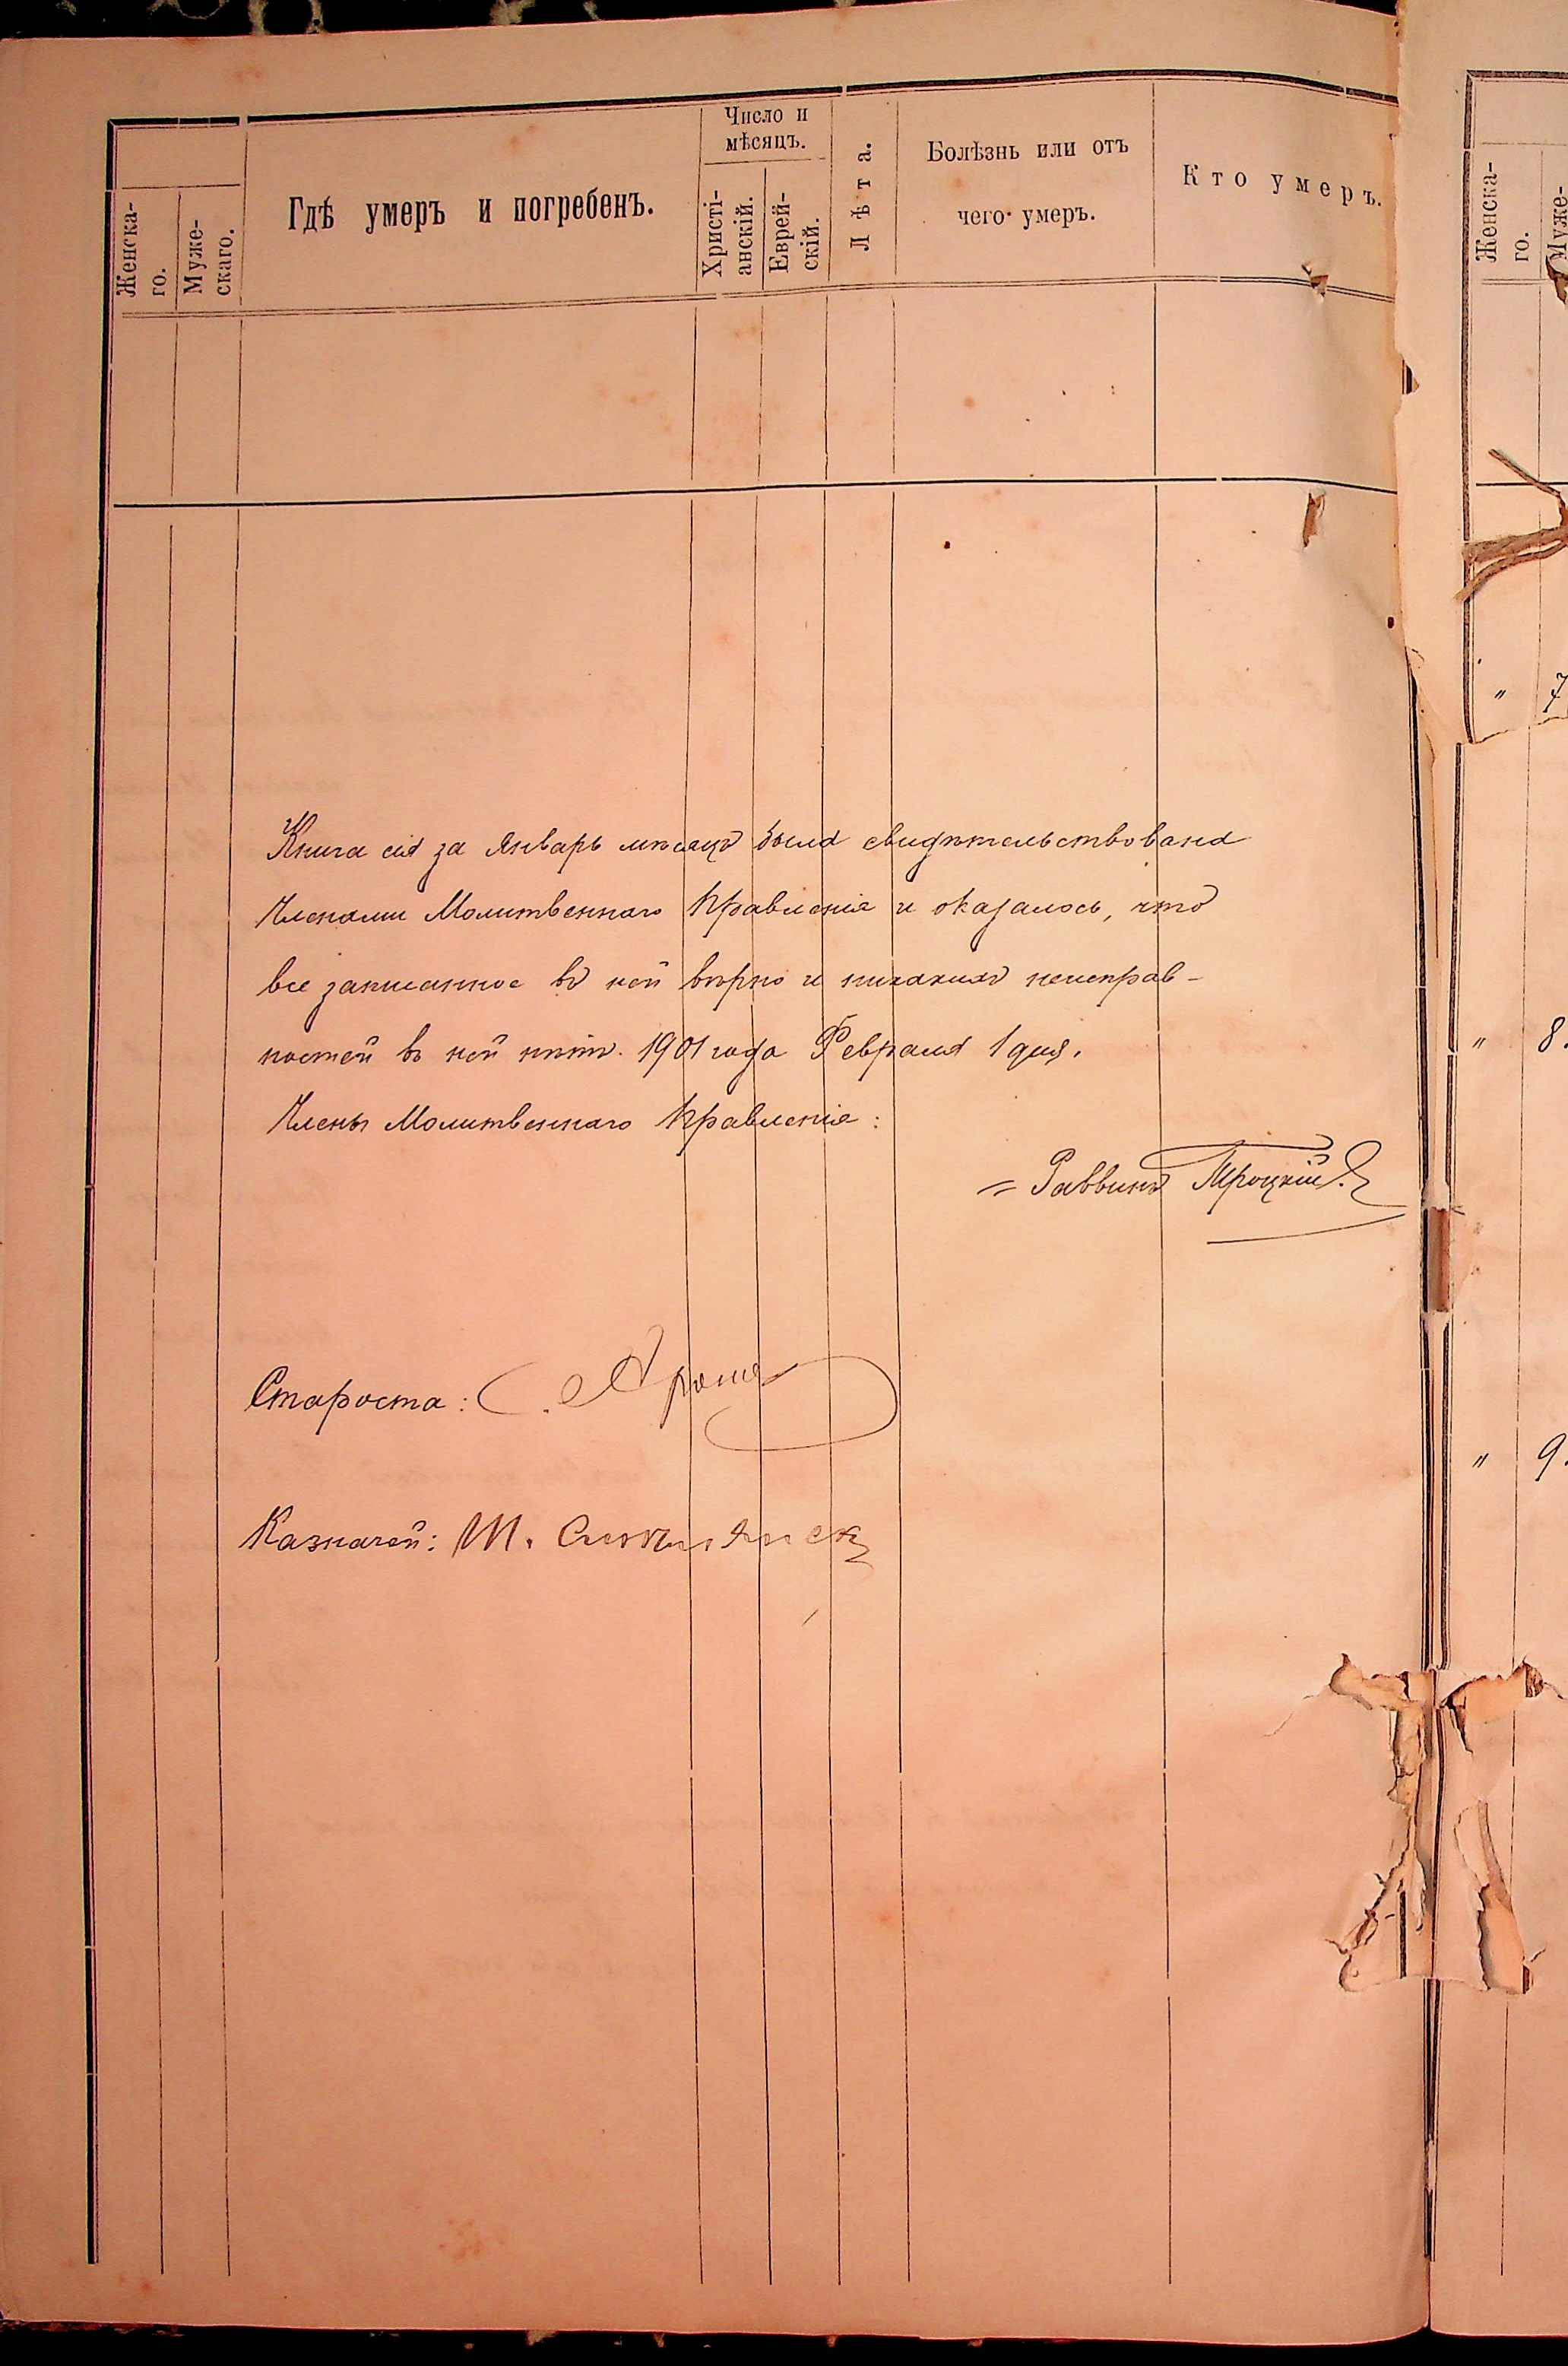 Число и
мѣсяцъ.
Женска-
го.
Муже-
скаго.
Гдѣ умеръ и погребенъ.
Христі-
анскій.
Еврей-
скій.
Лѣта.
Болѣзнь или отъ
чего умеръ.
Кто умеръ.
Книга сія за Январь мѣсяцъ была свидѣтельствована
Членами Молитвеннаго Правленія и оказалось, что
все записанное въ ней вѣрно и никакихъ неисправ-
ностей въ ней нѣтъ. 1901 года Февраля 1 дня.
Члены Молитвеннаго Правленія:
= Раввинъ Троцкій.
Староста:
Казначей: М.
Женска-
го.
Муже-
" 7
" 8.
" 9.